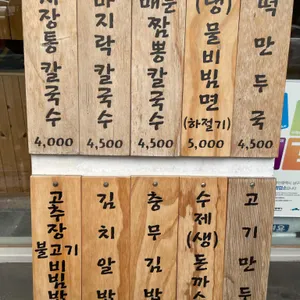 시장통 칼국수
4,000
바지락 칼국수
4,500
매운 짬뽕칼국수
4,500
(냉) 물비빔면
(하절기)
5,000
떡만두국
4,500
고추장
불고기
비빔밥
김치알밥
충무김밥
수제(생)돈까스
고기만두